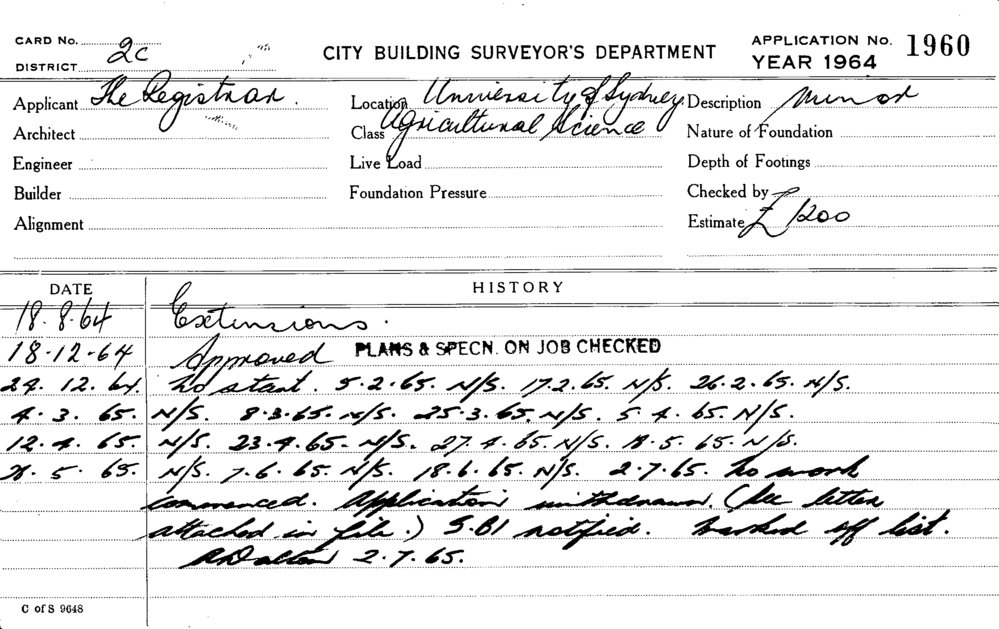 CARD No. 2c
DISTRICT
CITY BUILDING SURVEYOR'S DEPARTMENT
APPLICATION No. 1960
YEAR 1964
Applicant The Registrar.
Location University of Sydney.
Description Minor
Architect
Class Agricultural Science
Nature of Foundation
Engineer
Live Load
Depth of Footings
Builder
Foundation Pressure
Checked by
Alignment
Estimate £1200
DATE HISTORY
18.8.64 Extensions.
18-12-64 Approved PLANS & SPECN. ON JOB CHECKED
24. 12. 64. No start. 5-2-65. N/S. 17.2.65. N/S. 26.2.65. N/S.
4. 3. 65. N/S. 8.3.65. N/S. 25.3.65. N/S. 5 4. 65. N/S.
12. 4. 65. N/S. 23.4.65. N/S. 27.4.65. N/S. 5 65. N/S.
5. 65. N/S. 7.6.65. N/S. 18.6.65. N/S. 2.7.65. No work
commenced. Application withdrawn. (See letter
attached in file.) S.BI notified. Marked off list.
2.7.65.
C of S 9648